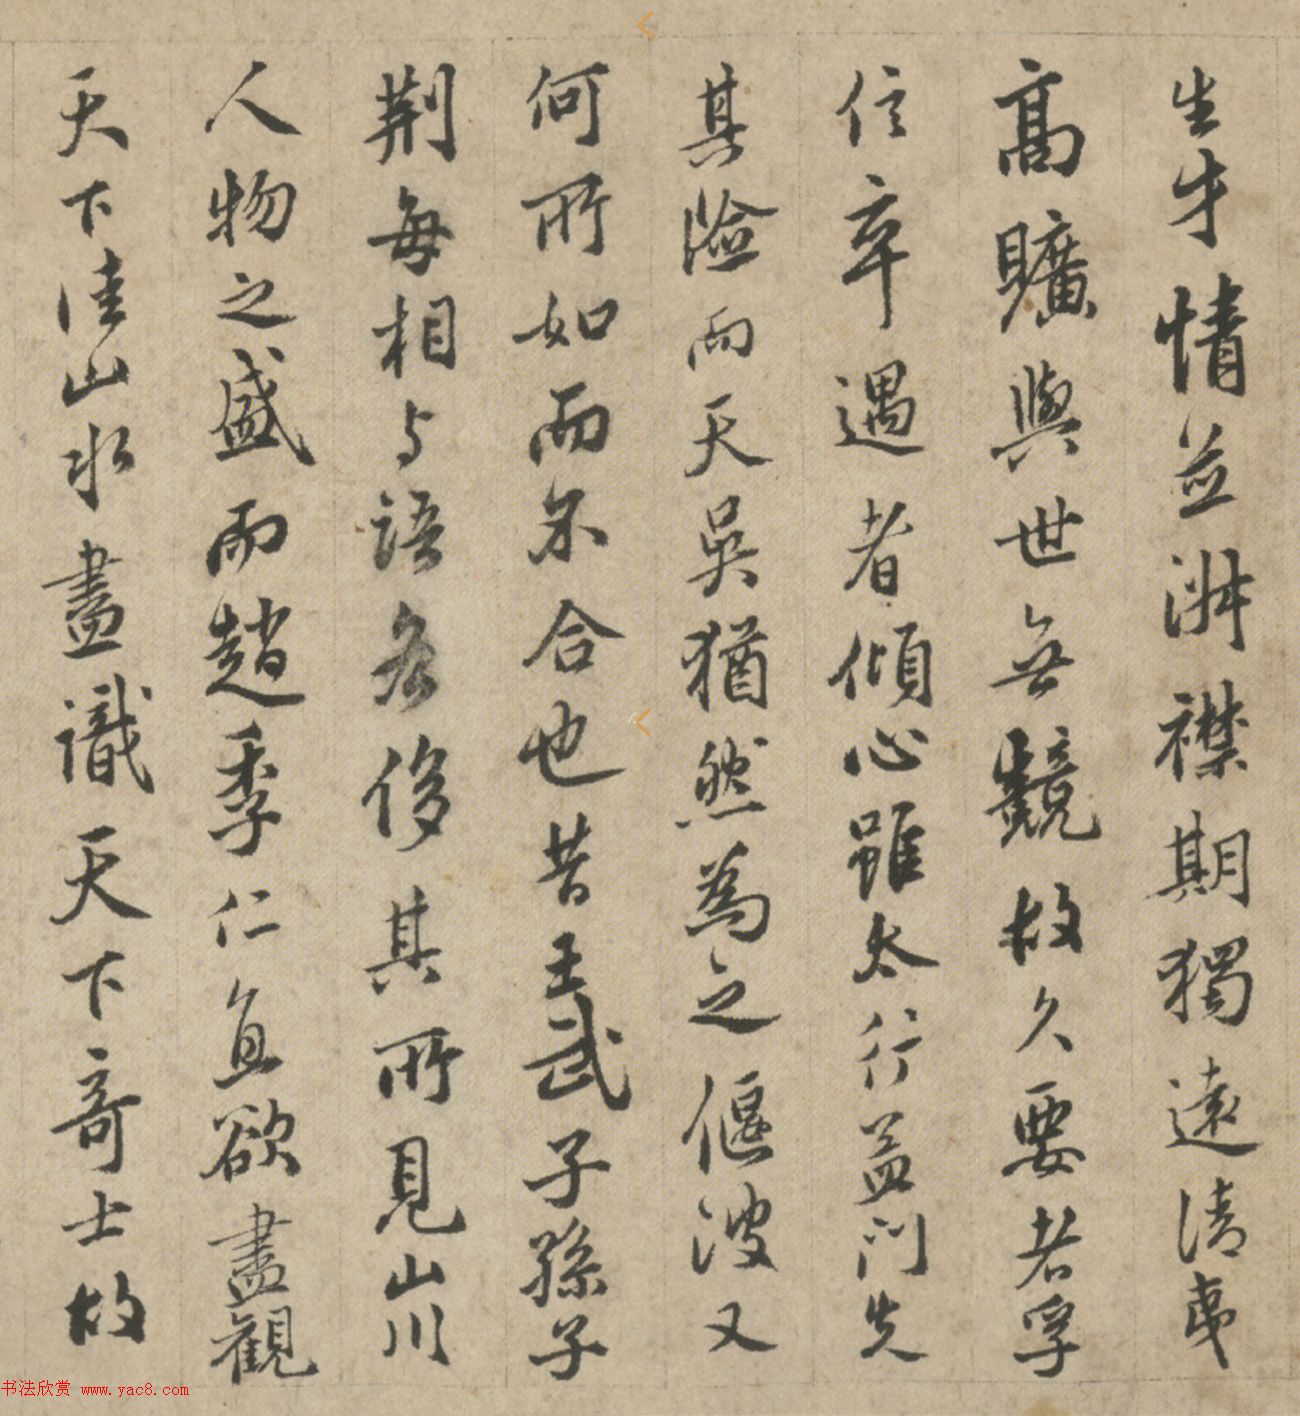 生才情並淋襟期獨遠清夷
高曠與世無競故久要者孚
信卒遇者傾心雖太行孟門失
其險而天吳猶然為之偃波又
何所如而不合也昔王武子孫子
荆每相与語各侈其所見山川
人物之盛而趙季仁直欲盡觀
天下佳山水盡識天下奇士故
书法欣赏 www.yac8.com